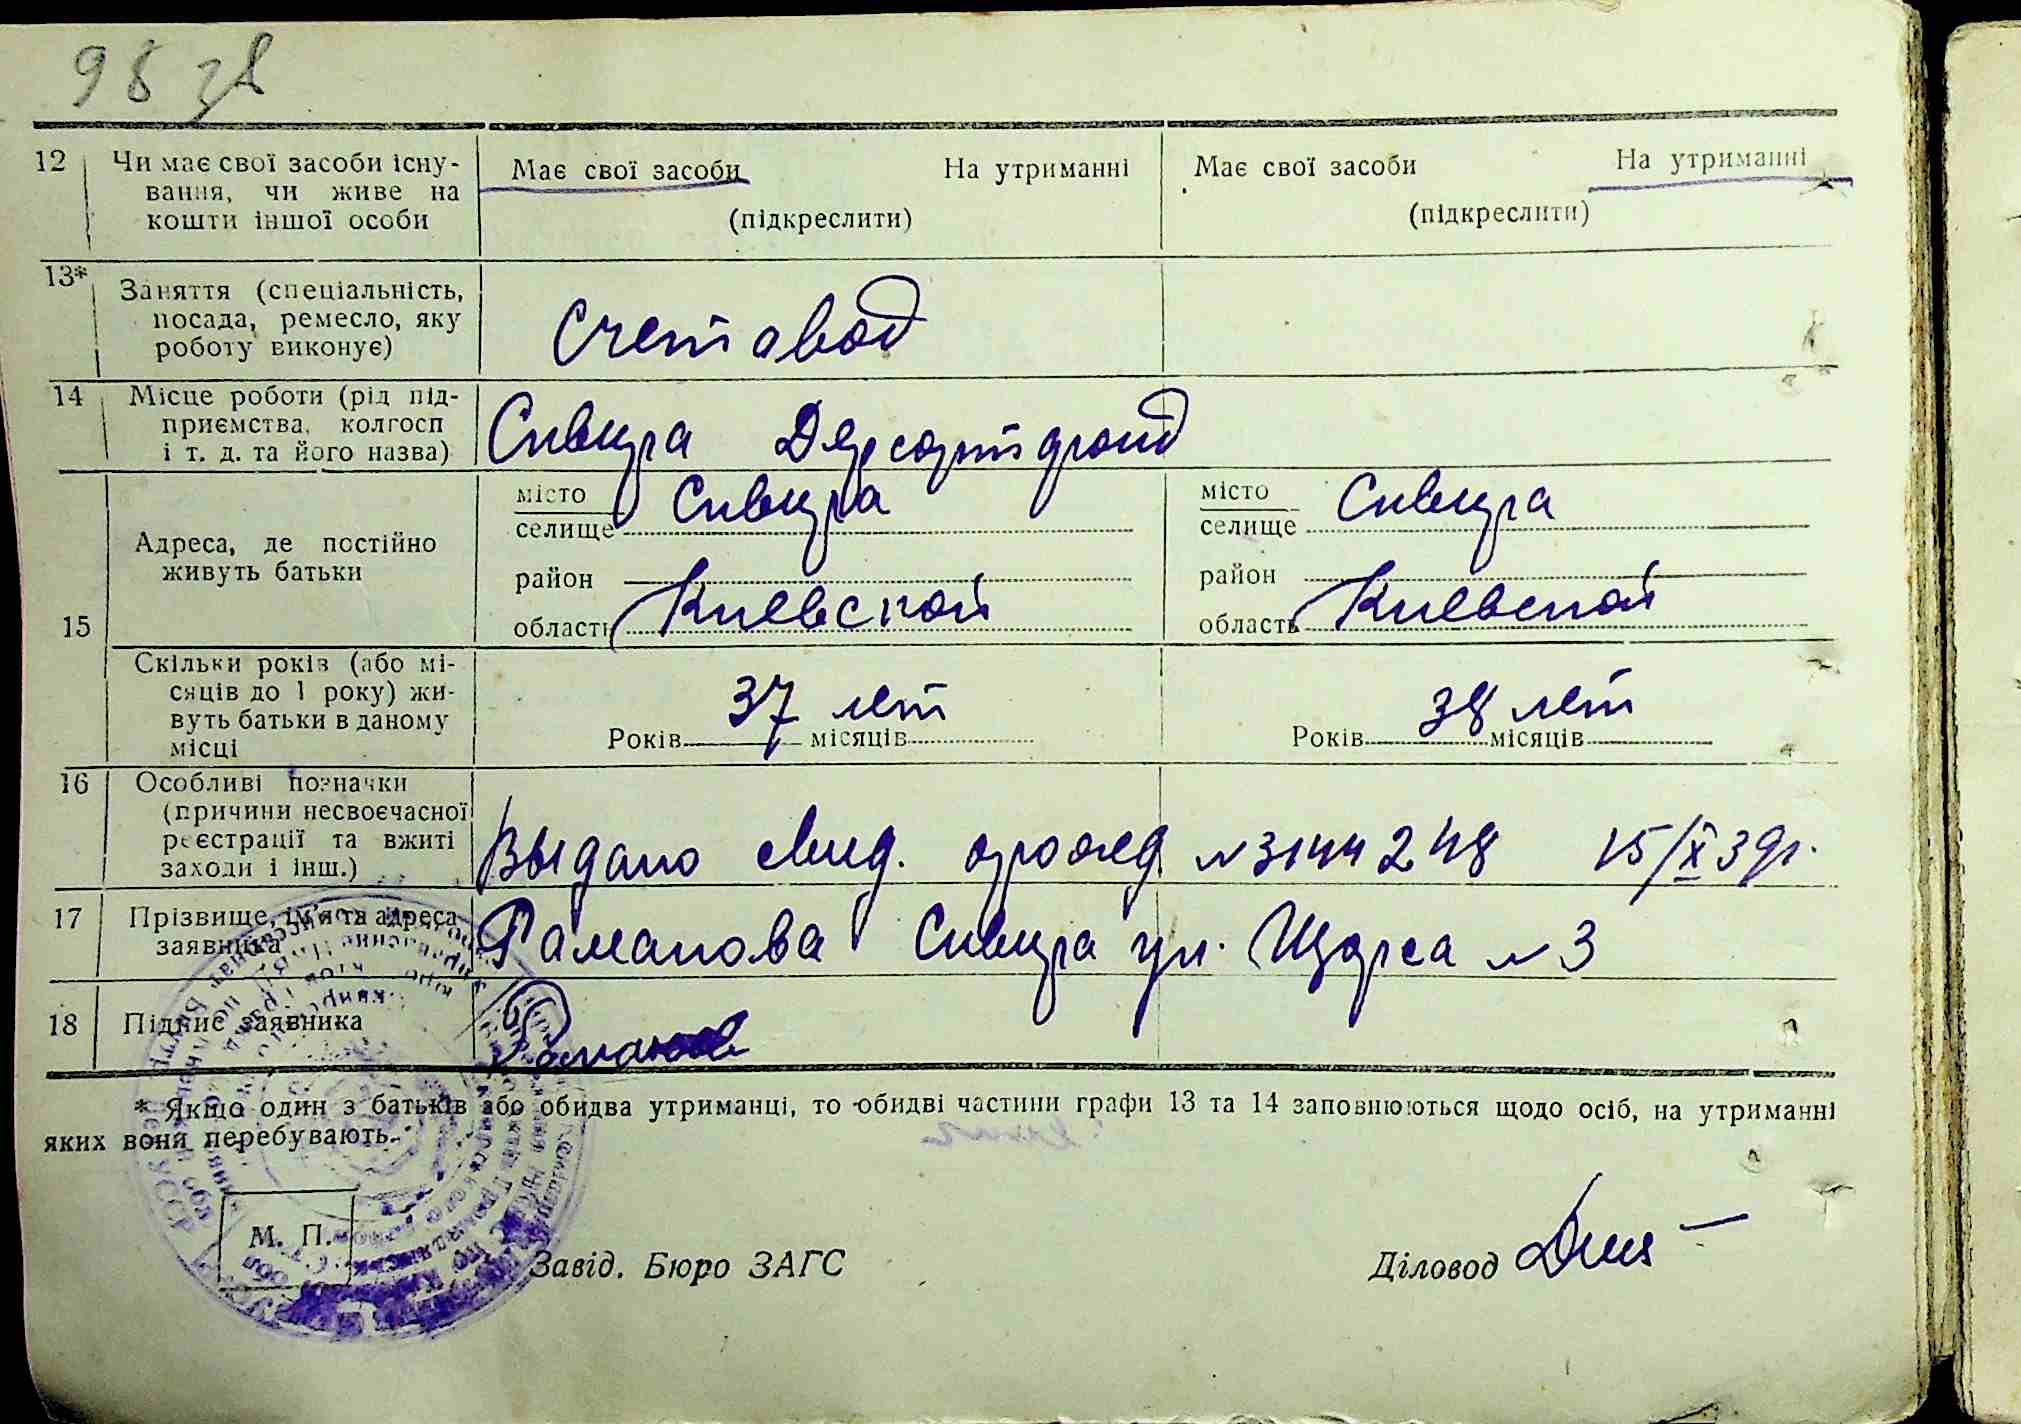 98 зв
12 Чи має свої засоби існу-
вання, чи живе на
кошти іншої особи
Має свої засоби На утриманні
(підкреслити)
Має свої засоби На утриманні
(підкреслити)
13* Заняття (спеціальність,
посада, ремесло, яку
роботу виконує)
Счетавод
14 Місце роботи (рід під-
приємства, колгосп
і т. д. та його назва)
Сквира Держсортфонд
15 Адреса, де постійно
живуть батьки
місто Сквира
селище
район
область Киевской
місто Сквира
селище
район
область Киевской
Скільки років (або мі-
сяців до 1 року) жи-
вуть батьки в даному
місці
37 лет
Років місяців
38 лет
Років місяців
16 Особливі позначки
(причини несвоєчасної
реєстрації та вжиті
заходи і інш.)
Выдано свид. о рожд № 3144248 15/X 39г.
17 Прізвище, ім'я та адреса
заявника
Романова Сквира ул. Щорса № 3
18 Підпис заявника
* Якщо один з батьків або обидва утриманці, то обидві частини графи 13 та 14 заповнюються щодо осіб, на утриманні
яких вони перебувають.
М. П.
Завід. Бюро ЗАГС
Діловод